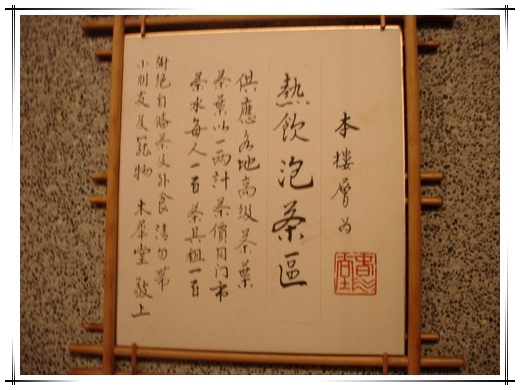 本樓層為
熱飲泡茶區
供應各地高級茶葉
茶葉以一兩計 茶價同门市
茶水每人一百 茶具租一百
謝絕自備茶及外食 請勿帶
小朋友及寵物 木犀堂 敬上